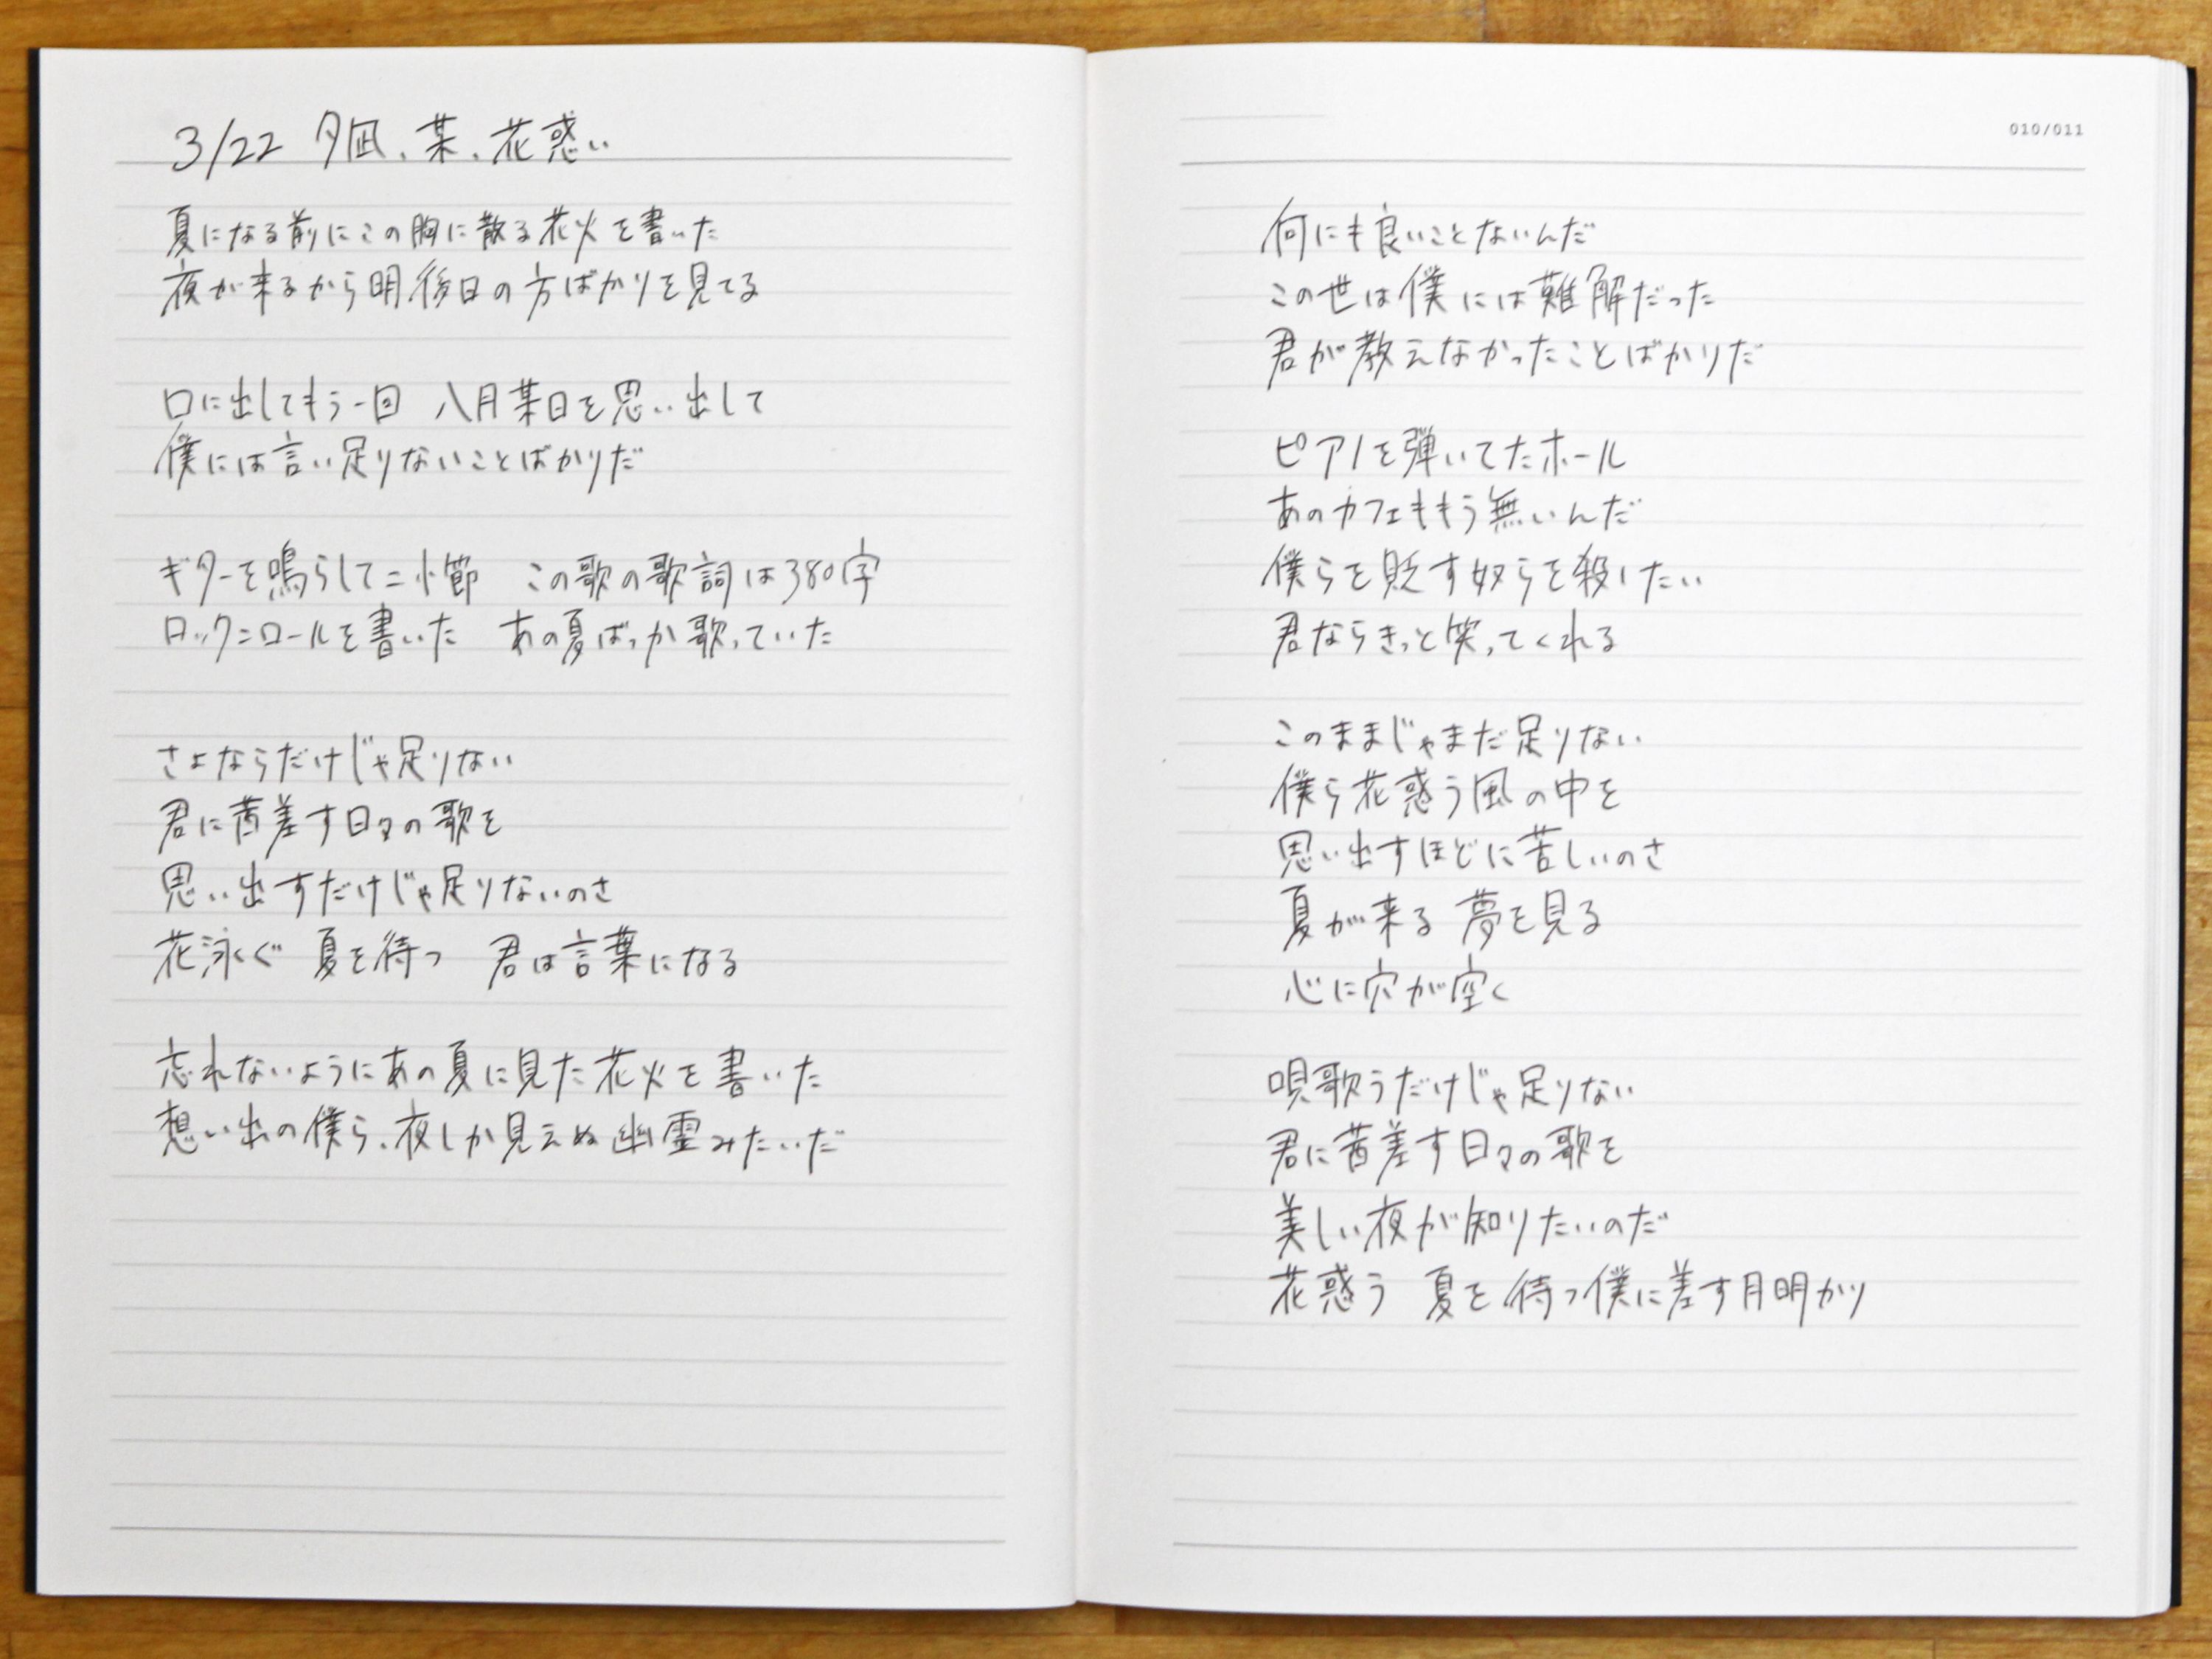 3/22 夕凪、某、花惑い
夏になる前にこの胸に散る花火を書いた
夜が来るから明後日の方ばかりを見てる
口に出してもう一回 八月某日を思い出して
僕には言い足りないことばかりだ
ギターを鳴らして二小節 この歌の歌詞は380字
ロックンロールを書いた あの夏ばっか歌っていた
さよならだけじゃ足りない
君に茜差す日々の歌を
思い出すだけじゃ足りないのさ
花泳ぐ 夏を待つ 君は言葉になる
忘れないようにあの夏に見た花火を書いた
想い出の僕ら、夜しか見えぬ幽霊みたいだ
010/011
何にも良いことないんだ
この世は僕には難解だった
君が教えなかったことばかりだ
ピアノを弾いてたホール
あのカフェももう無いんだ
僕らを貶す奴らを殺したい
君ならきっと笑ってくれる
このままじゃまだ足りない
僕ら花惑う風の中を
思い出すほどに苦しいのさ
夏が来る 夢を見る
心に穴が空く
唄歌うだけじゃ足りない
君に茜差す日々の歌を
美しい夜が知りたいのだ
花惑う 夏を待つ僕に差す月明かり